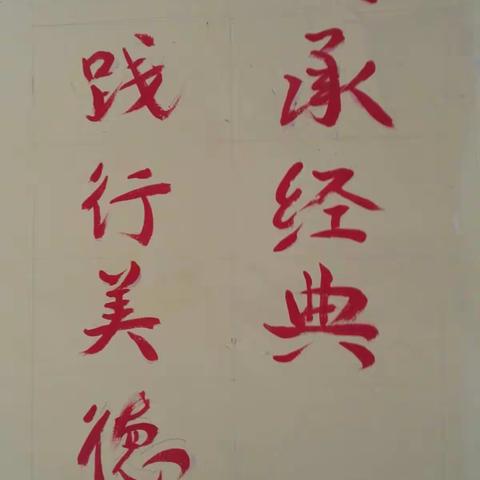 承经典
践行美德